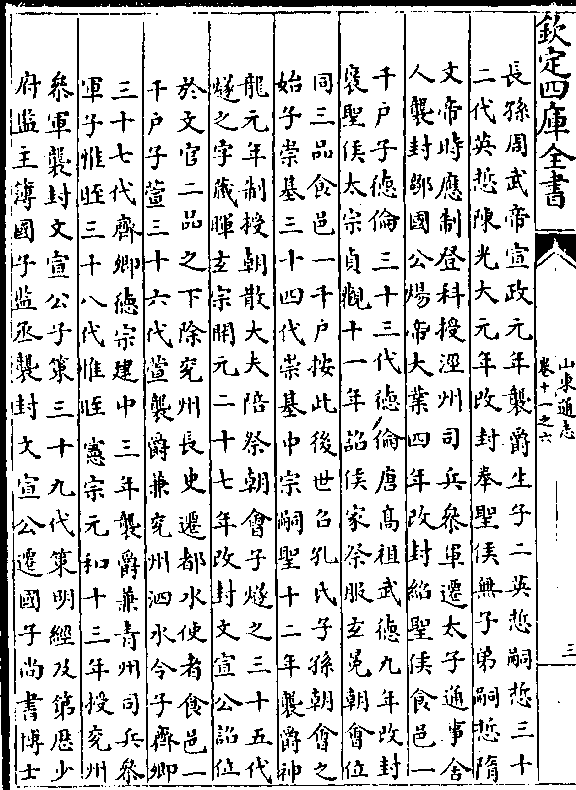 欽定四庫全書
山東通志
卷十一之六
三
長孫周武帝宣政元年襲爵生子二英悊嗣悊三十
二代英悊陳光大元年改封奉聖侯無子弟嗣悊隋
文帝時應制登科授涇州司兵參軍遷太子通事舍
人襲封鄒國公煬帝大業四年改封紹聖侯食邑一
千戶子德倫三十三代德倫唐高祖武德九年改封
襃聖侯太宗貞觀十一年詔侯家祭服玄冕朝會位
同三品食邑一千戶按此後世召孔氏子孫朝會之
始子崇基三十四代崇基中宗嗣聖十二年襲爵神
龍元年制授朝散大夫陪祭朝會子燧之三十五代
燧之字藏暉玄宗開元二十七年改封文宣公詔位
於文官二品之下除兖州長史遷都水使者食邑一
千户子萱三十六代萱襲爵兼兖州泗水令子齊卿
三十七代齊卿德宗建中三年襲爵兼青州司兵參
軍子惟晊三十八代惟晊憲宗元和十三年授兖州
參軍襲封文宣公子策三十九代策明經及第歷少
府監主簿國子監丞襲封文宣公遷國子尚書博士